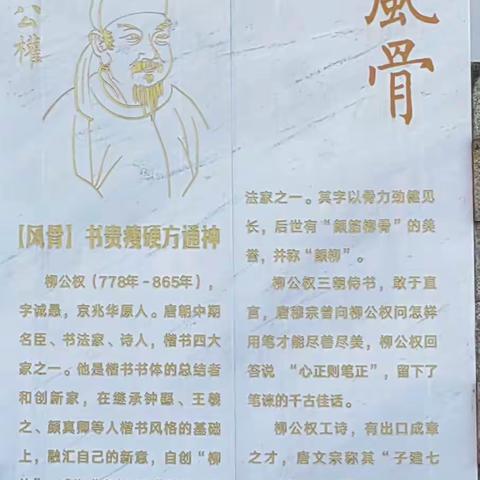 公權
風骨
【风骨】书贵瘦硬方通神
柳公权（778年-865年），
字诚悬，京兆华原人。唐朝中期
名臣、书法家、诗人，楷书四大
家之一。他是楷书书体的总结者
和创新家，在继承钟繇、王羲
之、颜真卿等人楷书风格的基础
上，融汇自己的新意，自创“柳
法家之一。其字以骨力劲健见
长，后世有“颜筋柳骨”的美
誉，并称“颜柳”。
柳公权三朝侍书，敢于直
言，唐穆宗曾向柳公权问怎样
用笔才能尽善尽美，柳公权回
答说 “心正则笔正”，留下了
笔谏的千古佳话。
柳公权工诗，有出口成章
之才，唐文宗称其“子建七